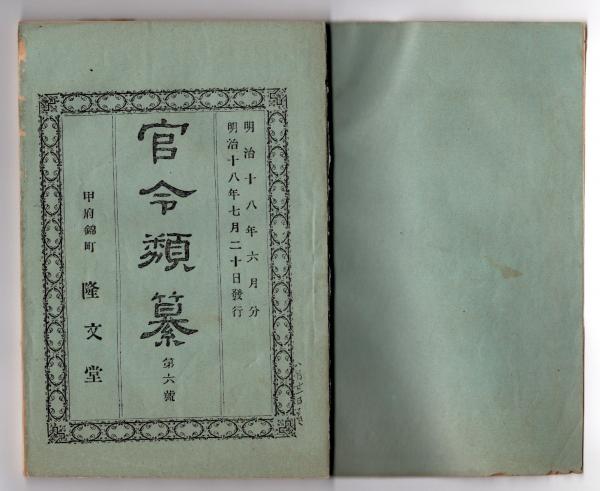 明治十八年六月分
明治十八年七月二十日發行
官令類纂 第六號
甲府錦町 隆文堂